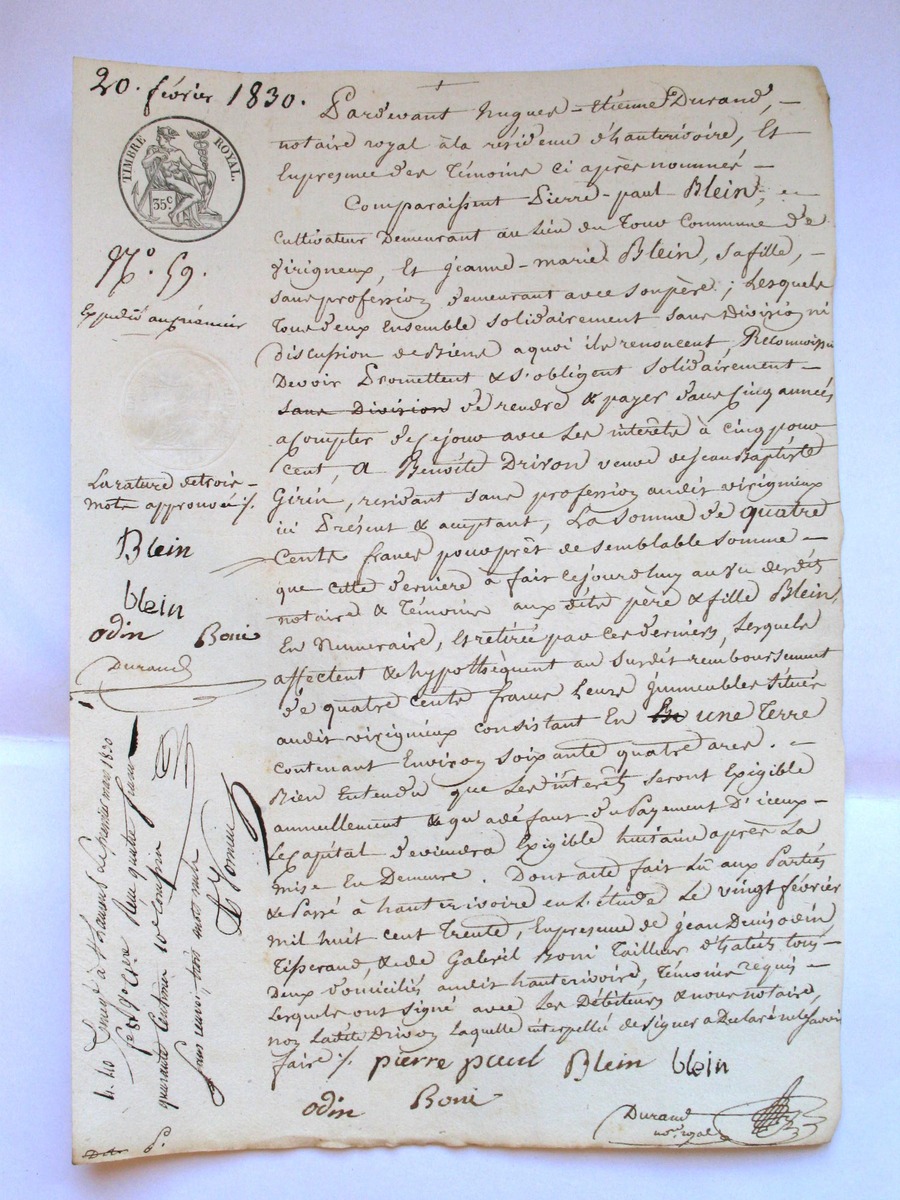 20. février 1830.
TIMBRE ROYAL.
35 c.
N°. 59.
Expédié au premier
La rature de trois
mots approuvée ./.
Blein
blein
odin Boni
Durand
Pardevant Hugues-Etienne Durand,
notaire royal à la résidence d'hauterivoire, Et
En presence des Témoins ci après nommés
Comparaissent Pierre-paul Blein,
Cultivateur Demeurant au Lieu du Commune de
virigneux, Et jeanne-marie Blein, sa fille,
sans profession demeurant avec son père; Lesquels
Tous deux Ensemble solidairement sans Division ni
discussion de Biens a quoi ils renoncent, Reconnoissent
Devoir Promettent & s'obligent solidairement
sans Division de rendre & payer dans Cinq années
a compter de ce jour avec Les interêts à cinq pour
cent, A Benoîte Drivon veuve de Jean Baptiste
Girin, residant sans profession audit virigneux
ici Présent & acceptant, La somme de quatre
Cents francs pour prêt de semblable somme
que cette dernière à fait cejourdhuy au vu desdits
notaire & Témoins aux dits père & fille Blein,
En Numeraire, Et retirée par ces derniers, Lesquels
affectent & hypothèquent au susdit remboursement
de quatre cents francs Leurs immeubles situés
audit virigneux consistant En une Terre
contenant Environ soixante quatre ares.
Bien Entendu que Les interêts seront Exigible
annuellement & qu'a défaut du Payement D'iceux
Le Capital deviendra Exigible huitaine après La
mise En Demeure. Dont acte fait Lû aux Parties
& Passé à hauterivoire en L'étude Le vingt février
mil huit cent Trente, En presence de jean Denis odin
Tisserand, & de Gabriel Boni Tailleur d'habits tous
Deux domiciliés audit hauterivoire, Témoins requis
Lesquels ont signé avec Les Débiteurs & nous notaire,
non Ladite Drivon Laquelle interpellée de signer a Déclaré ne le Savoir
faire ./. pierre paul Blein blein
odin Boni
Durand
n.re royal
Enregé à St Laurent le premier mars 1830
f° 98 R° Reçu quatre francs
quarante Centimes 10e compris
sans renvoi, trois mots nuls